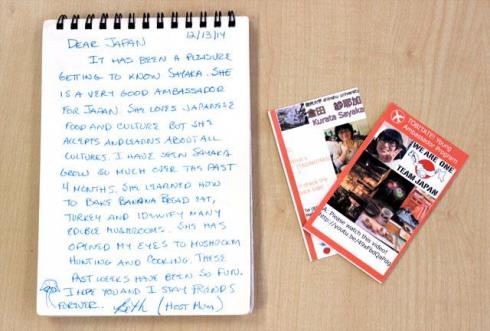 DEAR JAPAN 12/13/14
IT HAS BEEN A PLEASURE
GETTING TO KNOW SAYAKA. SHE
IS A VERY GOOD AMBASSADOR
FOR JAPAN. SHE LOVES JAPANESE
FOOD AND CULTURE BUT SHE
ACCEPTS AND LEARNS ABOUT ALL
CULTURES. I HAVE SEEN SAYAKA
GROW SO MUCH OVER THE PAST
4 MONTHS. SHE LEARNED HOW
TO BAKE BANANA BREAD, EAT
TURKEY AND IDENTIFY MANY
EDIBLE MUSHROOMS. SHE HAS
OPENED MY EYES TO MUSHROOM
HUNTING AND COOKING. THESE
PAST WEEKS HAVE BEEN SO FUN.
I HOPE YOU AND I STAY FRIENDS
FOREVER. (HOST MUM)
倉田 紗耶加
Kurata Sayaka
TOBITATE! Young
Ambassador Program
WE ARE ONE
TEAM JAPAN
A. Please watch this video!